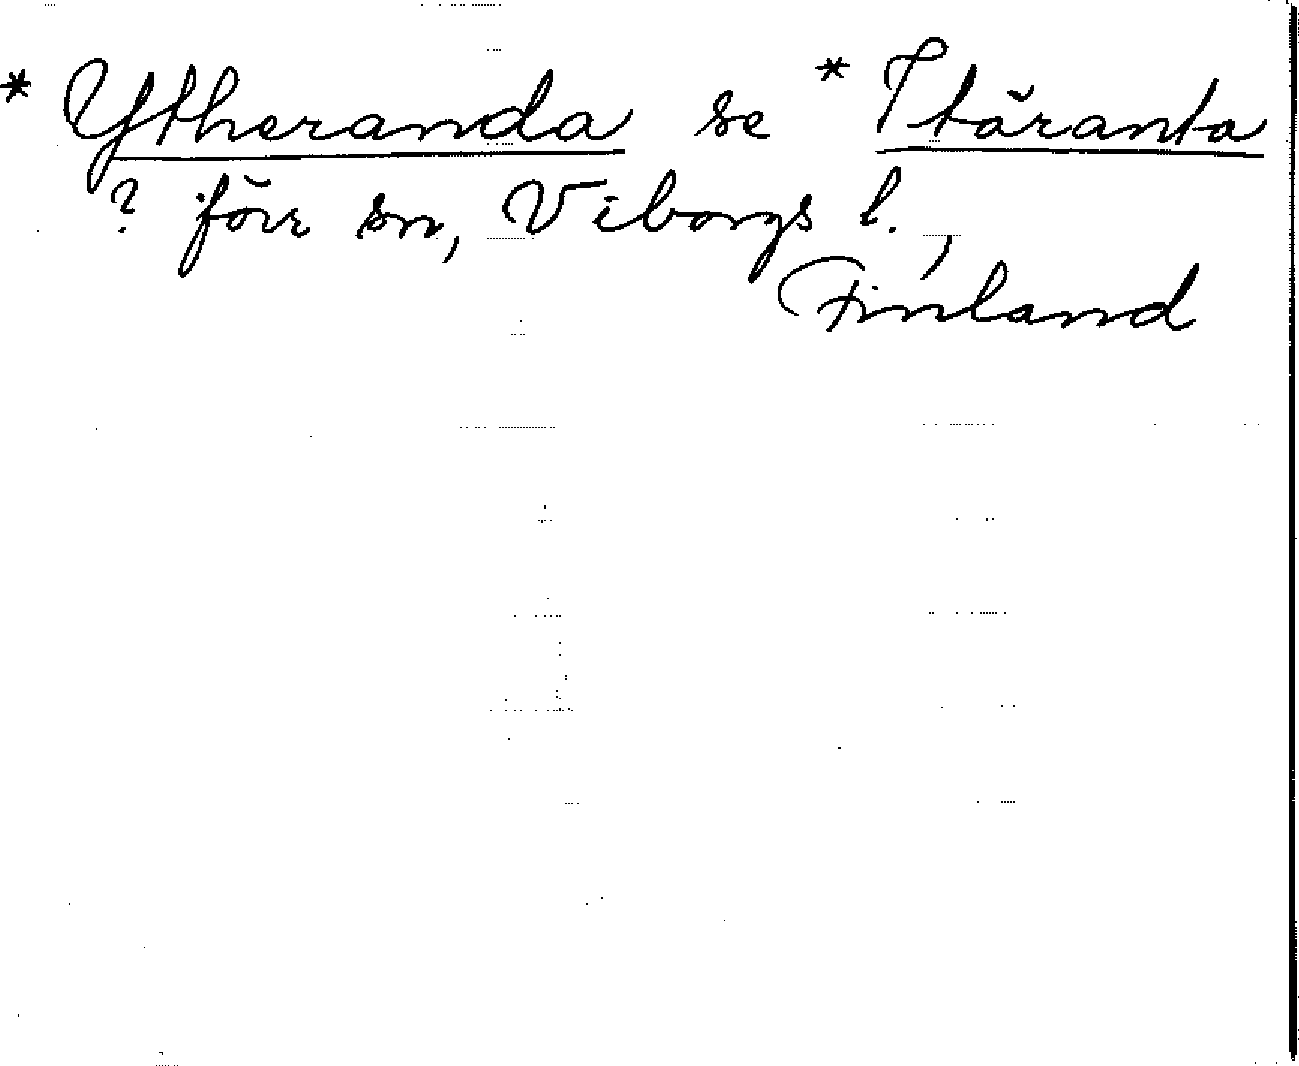 * Ytheranda se * Itäranta
? förr sn, Viborgs l.,
Finland